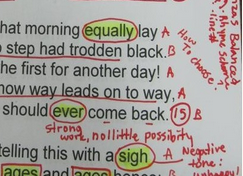 hat morning equally lay A
step had trodden black. B
the first for another day! A
how way leads on to way, A
should ever come back. (15) B
strong word, no little possibility
telling this with a sigh A Negative tone:
ages and ages hence: B unhappy!
How To Choose?
zas Balanced
Rhyme scheme
line #